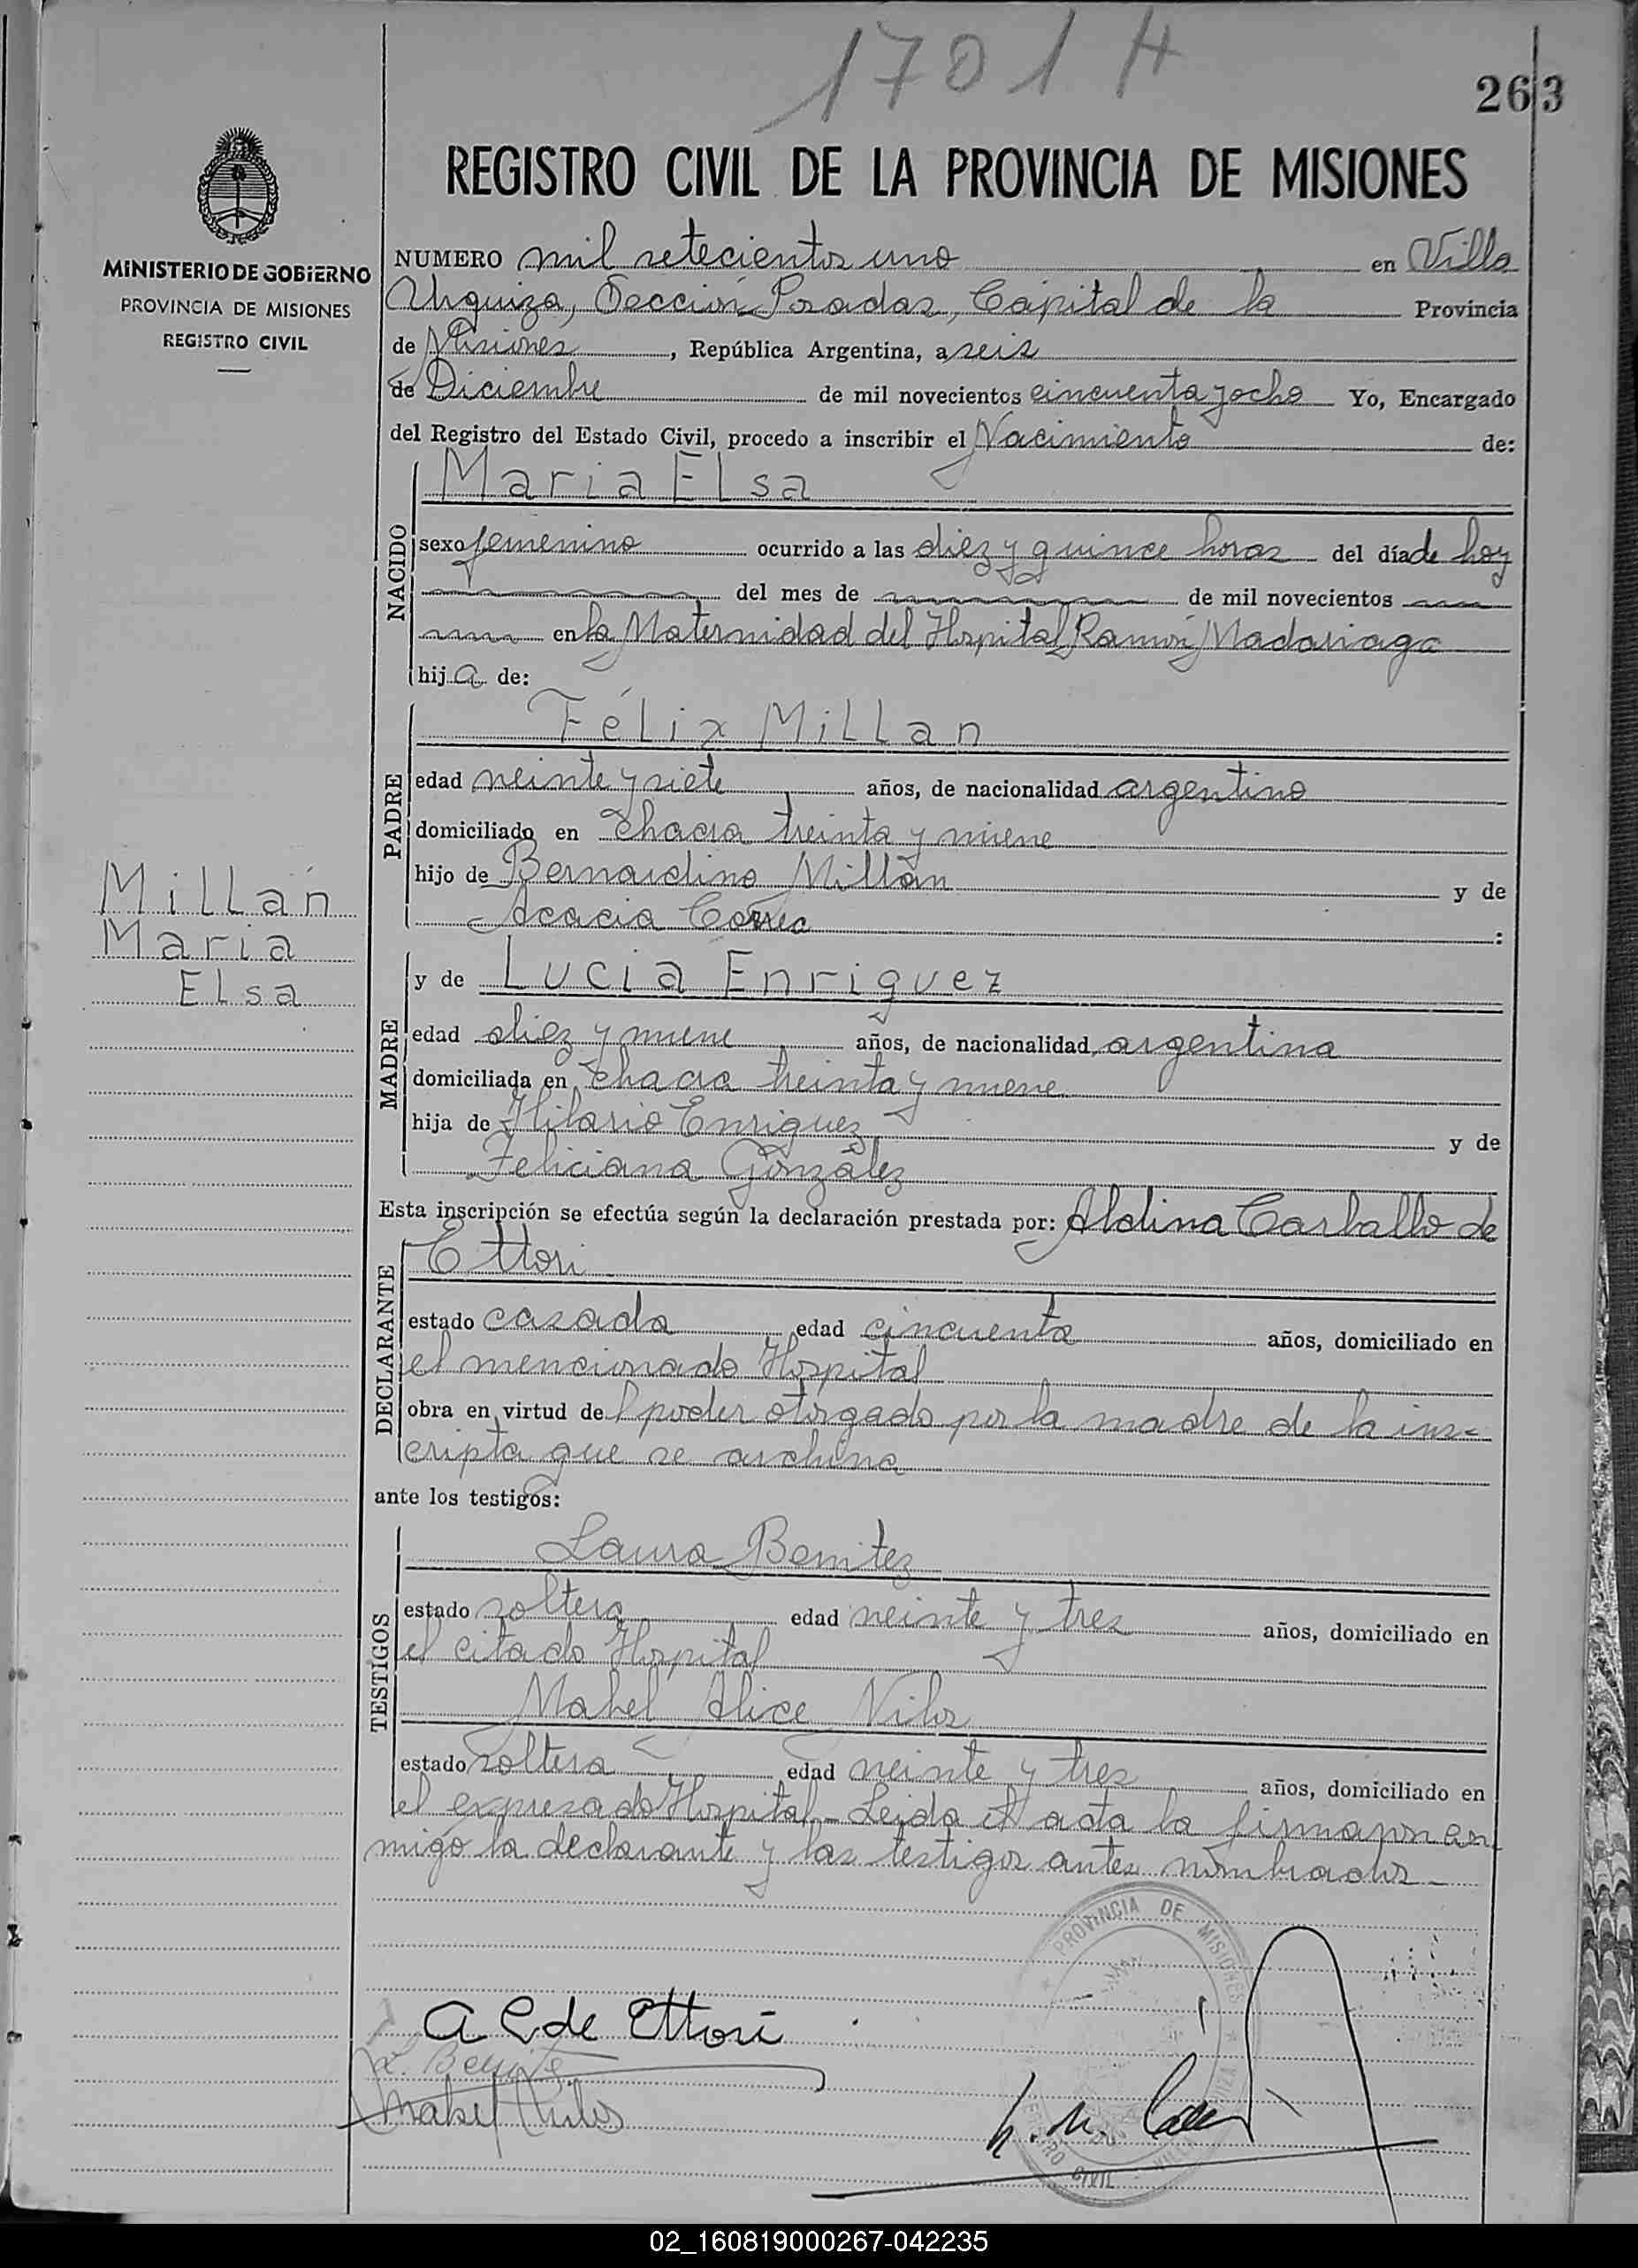 1701 H
263
REGISTRO CIVIL DE LA PROVINCIA DE MISIONES
MINISTERIO DE GOBIERNO
PROVINCIA DE MISIONES
REGISTRO CIVIL
NUMERO mil setecientos uno en Villa
Urquiza, Sección Posadas, Capital de la Provincia
de Misiones, República Argentina, a seis
de Diciembre de mil novecientos cincuenta y ocho Yo, Encargado
del Registro del Estado Civil, procedo a inscribir el Nacimiento de:
NACIDO
Maria Elsa
sexo femenino ocurrido a las diez y quince horas del día de hoy
del mes de de mil novecientos
en la Maternidad del Hospital Ramón Madariaga
hija de:
PADRE
Félix Millan
edad veinte y siete años, de nacionalidad argentino
domiciliado en Chacra treinta y nueve
hijo de Bernardino Millán y de
Acacia Correa :
Millan
Maria
Elsa
MADRE
y de Lucia Enriquez
edad diez y nueve años, de nacionalidad argentina
domiciliada en Chacra treinta y nueve
hija de Hilario Enriquez y de
Feliciana González
Esta inscripción se efectúa según la declaración prestada por: Aldina Carballo de
DECLARANTE
Ettori
estado casada edad cincuenta años, domiciliado en
el mencionado Hospital
obra en virtud del poder otorgado por la madre de la ins-
cripta que se archiva
ante los testigos:
TESTIGOS
Laura Benitez
estado soltera edad veinte y tres años, domiciliado en
el citado Hospital
Mabel Alice Vilos
estado soltera edad veinte y tres años, domiciliado en
el expresado Hospital- Leida el acta la firmaron con
migo la declarante y las testigos antes nombrados-
PROVINCIA DE MISIONES
REGISTRO CIVIL
A C de Ettori
L. Benitez
Mabel Vilos
02_160819000267-042235